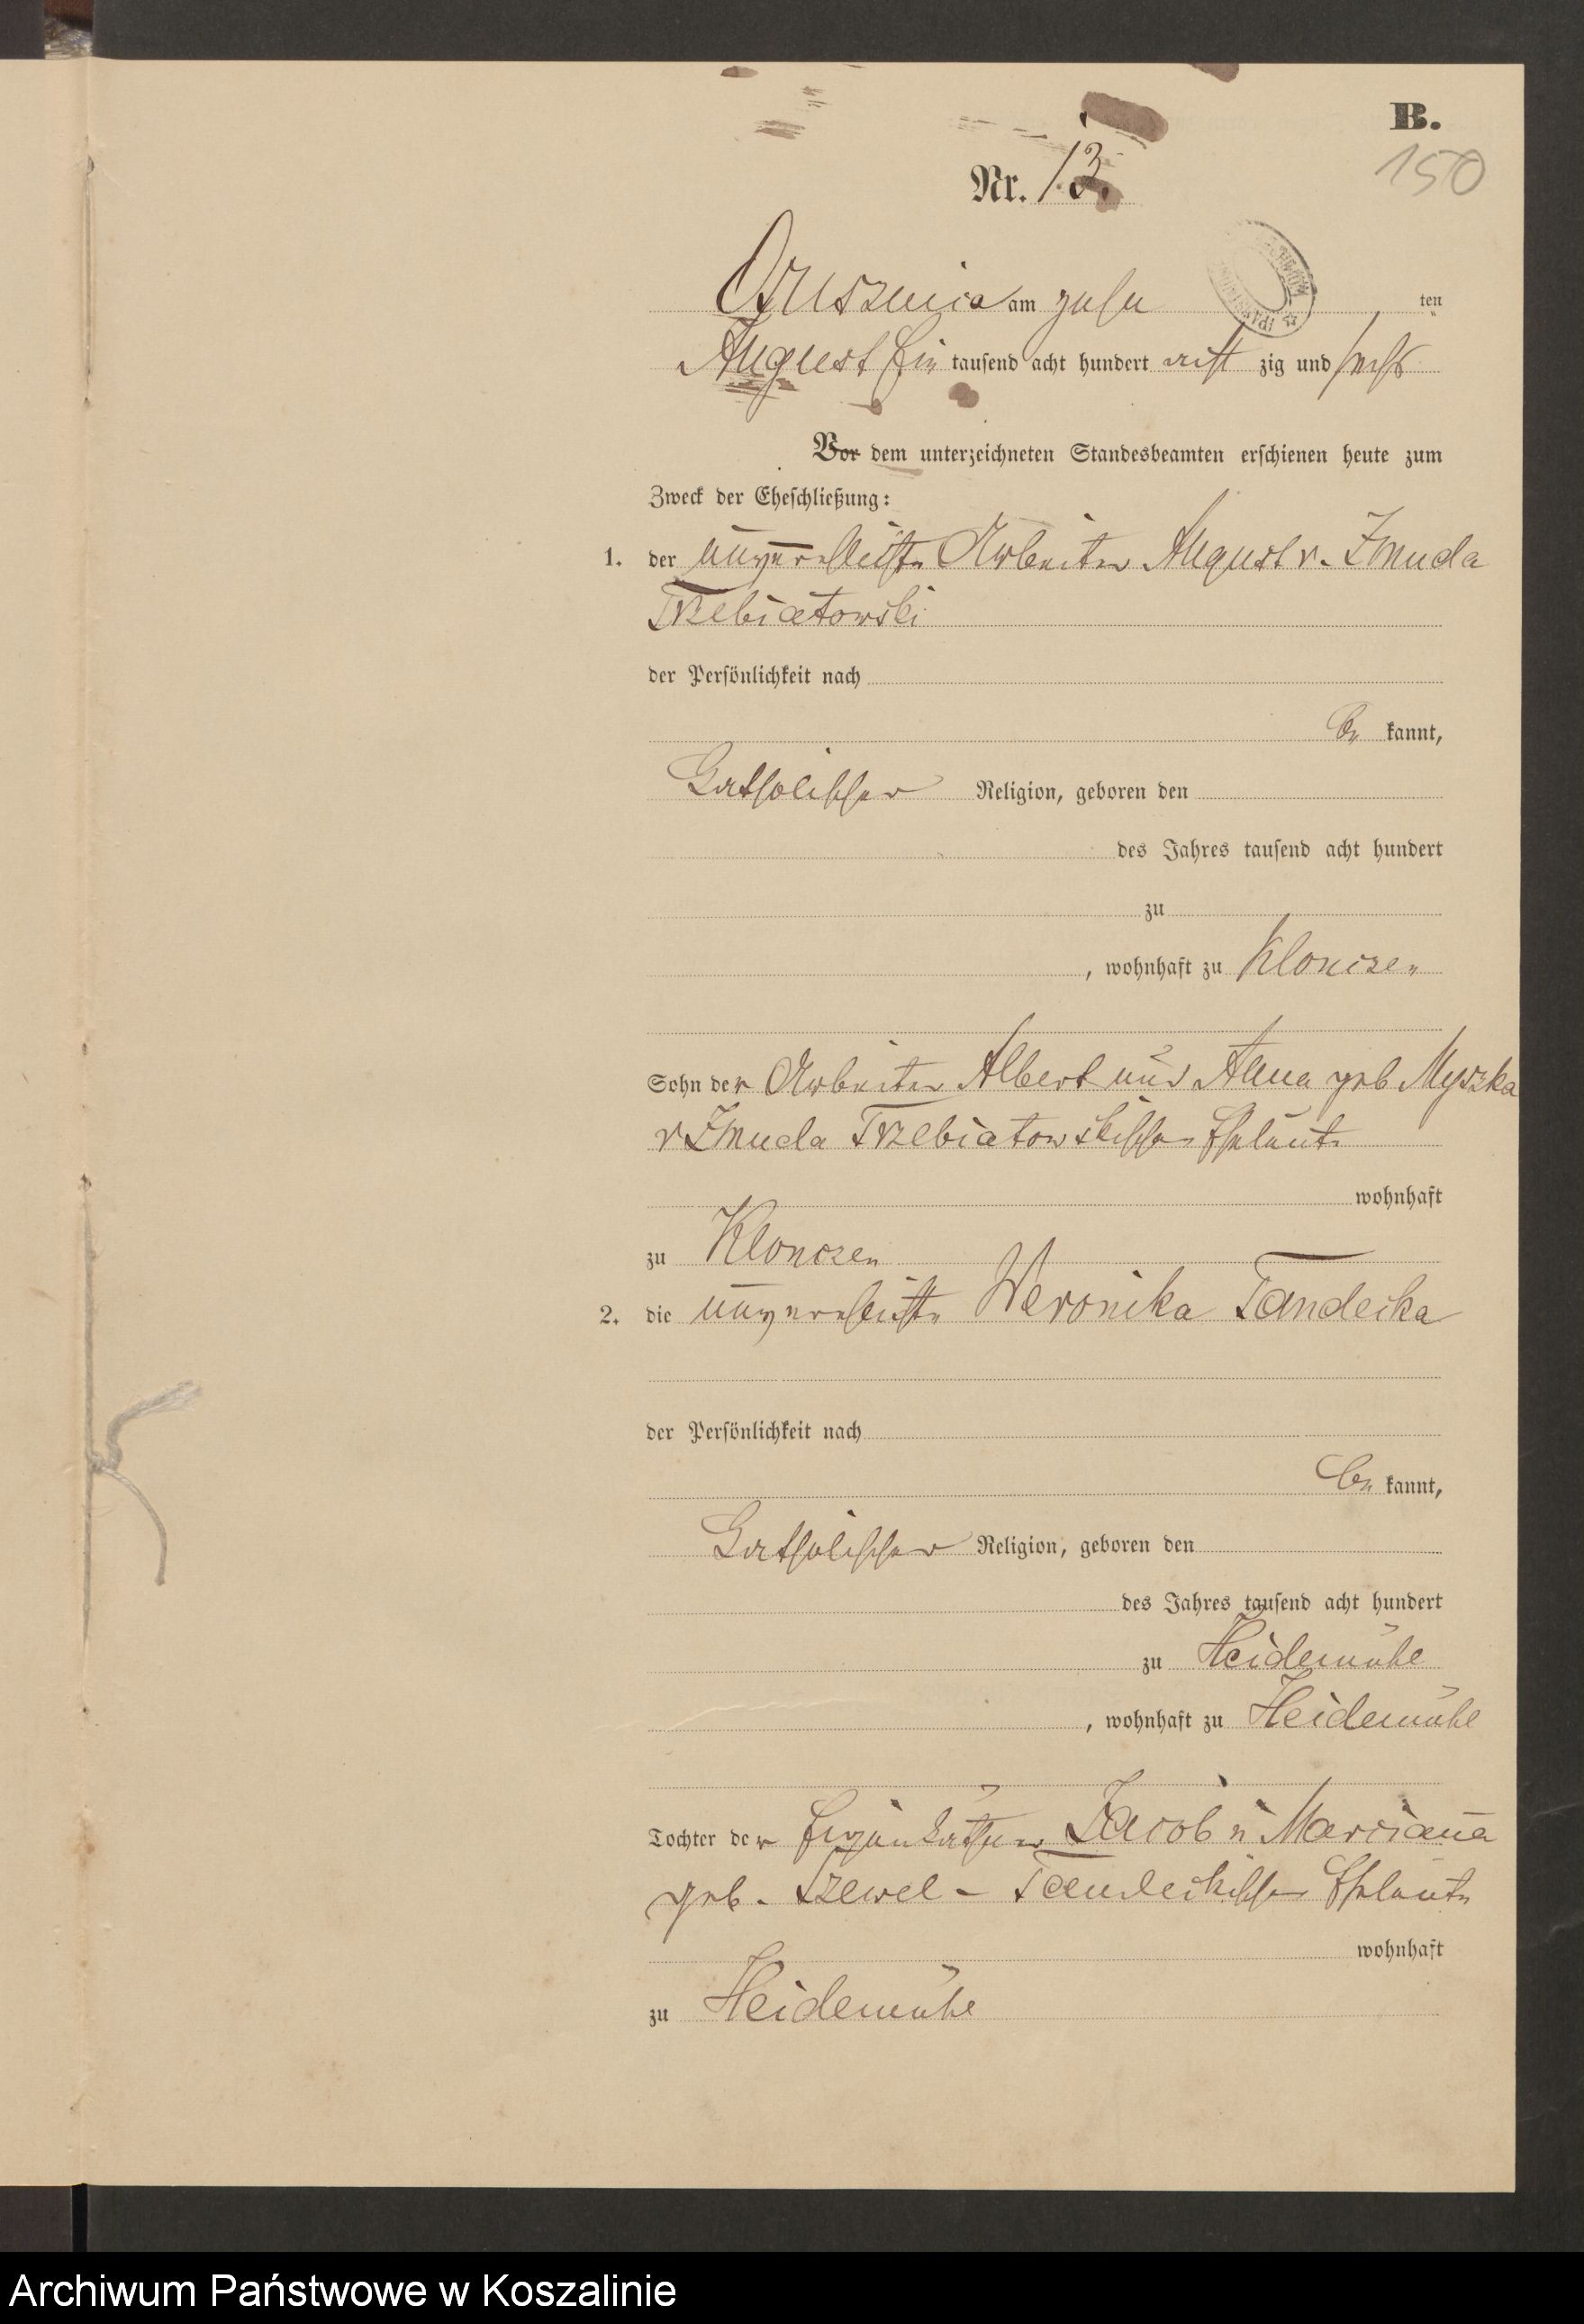 B.
150
Nr. 13.
Oszusznica am zehn ten
August Ein tausend acht hundert acht zig und sechs
Vor dem unterzeichneten Standesbeamten erschienen heute zum
Zweck der Eheschließung:
1. der unverehelichte Arbeiter August v. Zmuda
Trzebiatowski
der Persönlichkeit nach
be kannt,
Catholischer Religion, geboren den
des Jahres tausend acht hundert
zu
, wohnhaft zu Klonczen
Sohn der Arbeiter Albert und Anna geb Myszka
v Zmuda Trzebiatowskischen Eheleute
wohnhaft
zu Klonczen
2. die unverehelichte Weronika Tandecka
der Persönlichkeit nach
be kannt,
Catholischer Religion, geboren den
des Jahres tausend acht hundert
zu Heidemühe
, wohnhaft zu Heidemühe
Tochter der Eigenkäthner Jacob u Marciana
geb. Szewel - Tandeckischen Eheleute
wohnhaft
zu Heidemühe
Archiwum Państwowe w Koszalinie